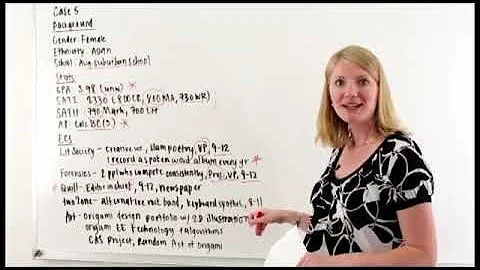 Case 5
Background
Gender: Female
Ethnicity: Asian
School: Avg suburban school
Stats
GPA 3.98 (unw) *
SAT I: 2330 (800CR, 800MA, 730WR)
SAT II: 790 Math, 700 Lit
AP Calc BC (5) *
ECs
Lit Society - creative wr., slam poetry, VP, 9-12
1 record as poken word album every yr *
Forensics - 2 ppl who compete consistently, Pres, VP, 9-12
* Quill - Editor in chief, 9-12, newspaper
two Zone - alternative rock band, keyboard, synth, 8-11
Art - origami design portfolio w/ 20 illustration
origami EE technology & algorithms
CAS Project, Random Act of Origami